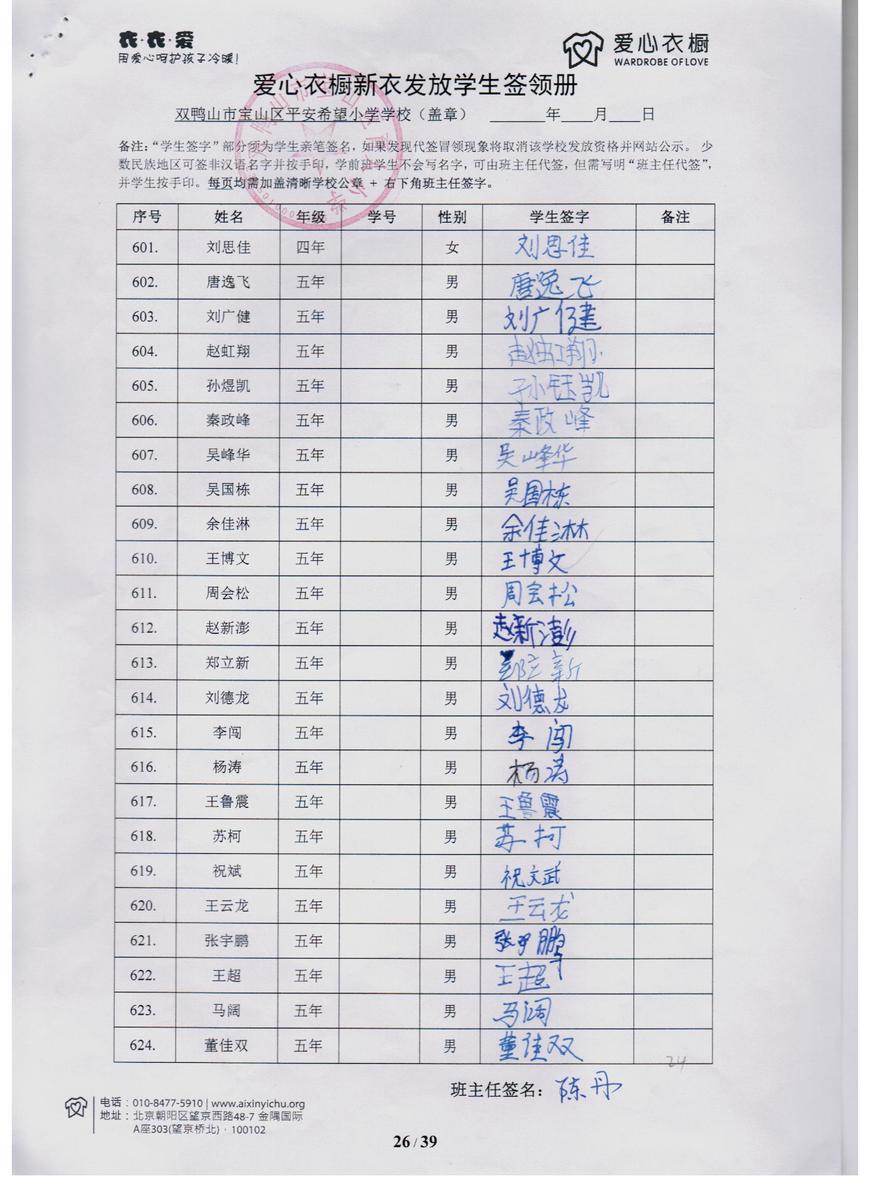 衣·衣·爱
用爱心呵护孩子冷暖!
爱心衣橱
WARDROBE OF LOVE
爱心衣橱新衣发放学生签领册
双鸭山市宝山区平安希望小学学校（盖章） ______年____月____日
备注：“学生签字”部分须为学生亲笔签名，如果发现代签冒领现象将取消该学校发放资格并网站公示。 少
数民族地区可签非汉语名字并按手印，学前班学生不会写名字，可由班主任代签，但需写明“班主任代签”，
并学生按手印。每页均需加盖清晰学校公章 + 右下角班主任签字。
序号 姓名 年级 学号 性别 学生签字 备注
601. 刘思佳 四年 女 刘思佳
602. 唐逸飞 五年 男 唐逸飞
603. 刘广健 五年 男 刘广健
604. 赵虹翔 五年 男 赵虹翔
605. 孙煜凯 五年 男 孙钰凯
606. 秦政峰 五年 男 秦政峰
607. 吴峰华 五年 男 吴峰华
608. 吴国栋 五年 男 吴国栋
609. 余佳淋 五年 男 余佳淋
610. 王博文 五年 男 王博文
611. 周会松 五年 男 周会松
612. 赵新澎 五年 男 赵新澎
613. 郑立新 五年 男 郑立新
614. 刘德龙 五年 男 刘德龙
615. 李闯 五年 男 李闯
616. 杨涛 五年 男 杨涛
617. 王鲁震 五年 男 王鲁震
618. 苏柯 五年 男 苏柯
619. 祝斌 五年 男 祝斌
620. 王云龙 五年 男 王云龙
621. 张宇鹏 五年 男 张宇鹏
622. 王超 五年 男 王超
623. 马阔 五年 男 马阔
624. 董佳双 五年 男 董佳双
24
班主任签名：陈丹
电话：010-8477-5910 | www.aixinyichu.org
地址：北京朝阳区望京西路48-7 金隅国际
A座303(望京桥北)·100102
26 / 39